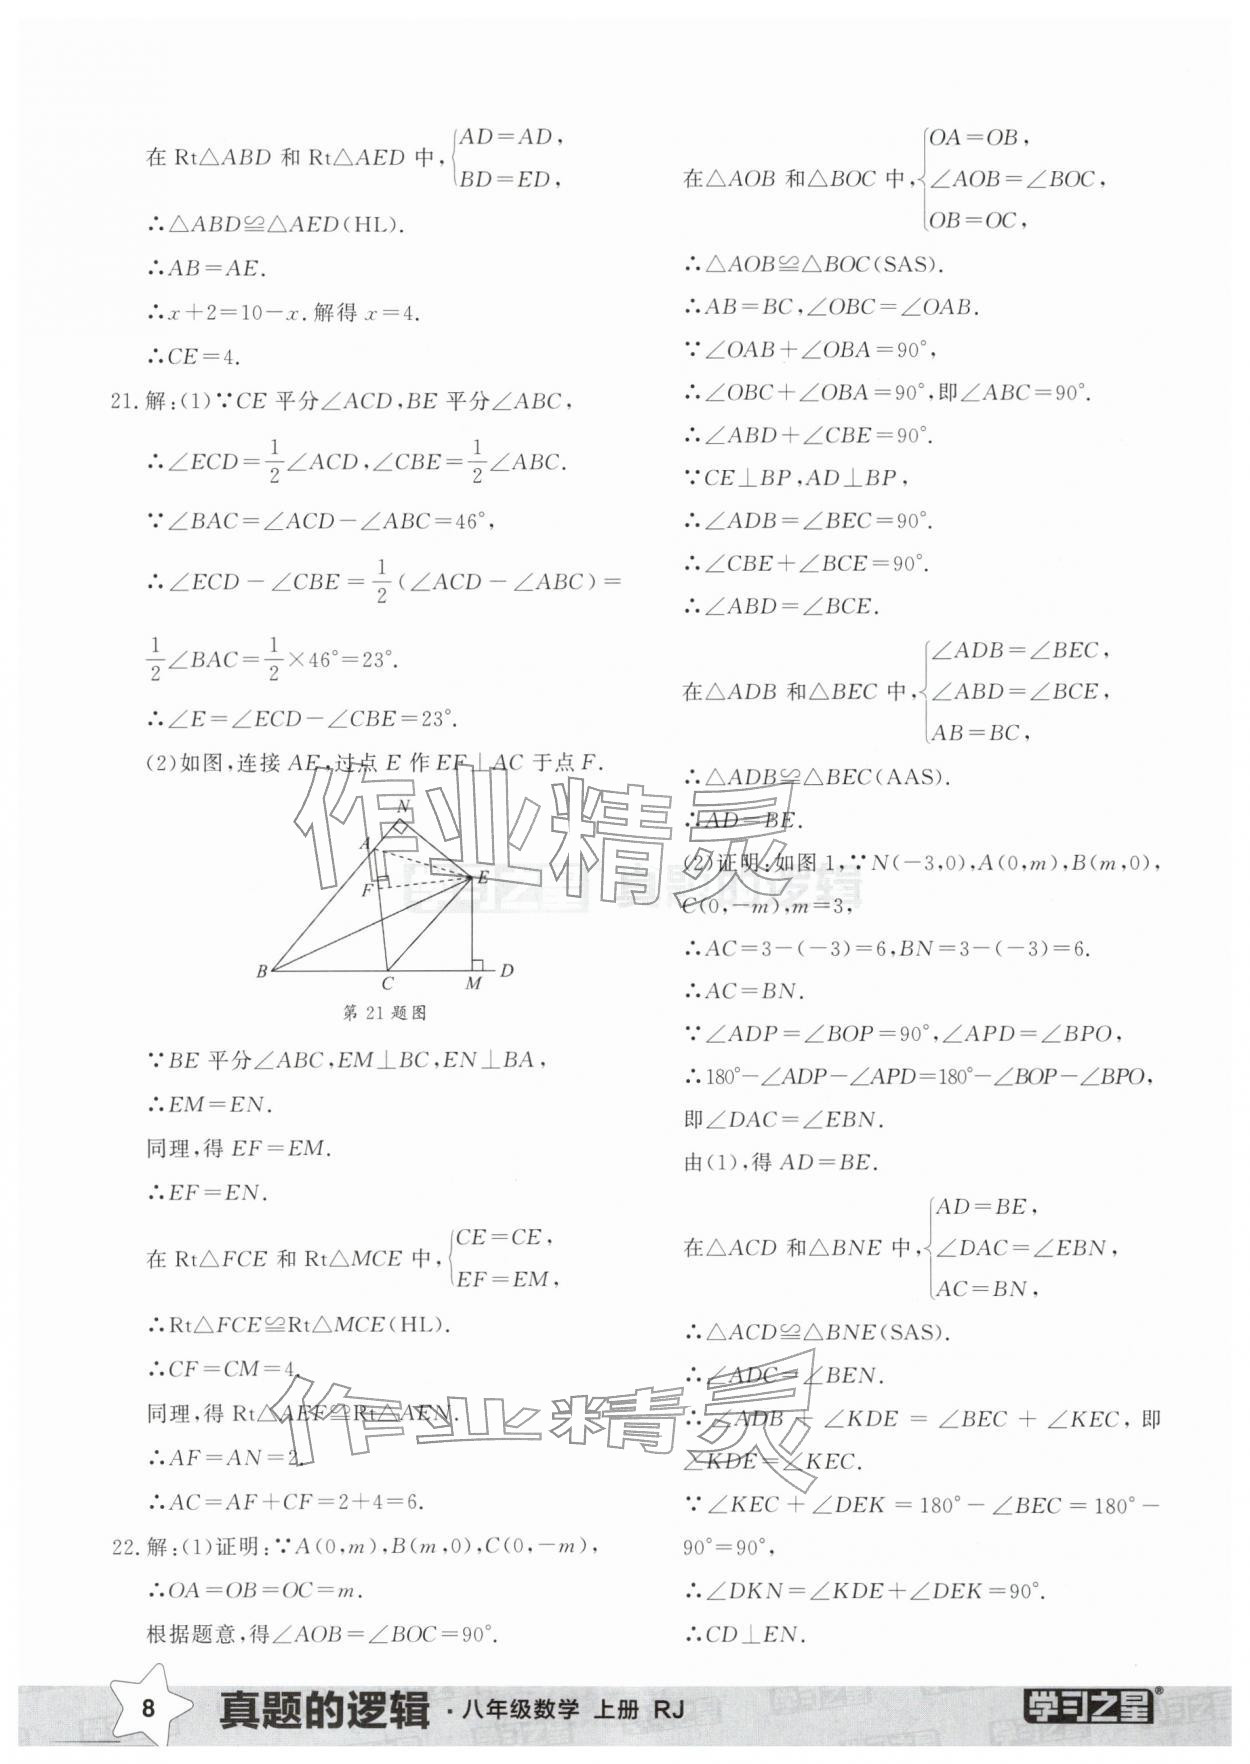 在 Rt△ABD 和 Rt△AED 中,{AD=AD,
BD=ED,
∴△ABD≌△AED(HL).
∴AB=AE.
∴x+2=10-x.解得 x=4.
∴CE=4.
21.解:(1)∵CE 平分∠ACD,BE 平分∠ABC,
∴∠ECD=1/2∠ACD,∠CBE=1/2∠ABC.
∵∠BAC=∠ACD-∠ABC=46°,
∴∠ECD-∠CBE=1/2(∠ACD-∠ABC)=
1/2∠BAC=1/2×46°=23°.
∴∠E=∠ECD-∠CBE=23°.
(2)如图,连接 AE,过点 E 作 EF⊥AC 于点 F.
N
A
F
E
B
C
M
D
第 21 题图
∵BE 平分∠ABC,EM⊥BC,EN⊥BA,
∴EM=EN.
同理,得 EF=EM.
∴EF=EN.
在 Rt△FCE 和 Rt△MCE 中,{CE=CE,
EF=EM,
∴Rt△FCE≌Rt△MCE(HL).
∴CF=CM=4.
同理,得 Rt△AEF≌Rt△AEN.
∴AF=AN=2.
∴AC=AF+CF=2+4=6.
22.解:(1)证明:∵A(0,m),B(m,0),C(0,-m),
∴OA=OB=OC=m.
根据题意,得∠AOB=∠BOC=90°.
在△AOB 和△BOC 中,{OA=OB,
∠AOB=∠BOC,
OB=OC,
∴△AOB≌△BOC(SAS).
∴AB=BC,∠OBC=∠OAB.
∵∠OAB+∠OBA=90°,
∴∠OBC+∠OBA=90°,即∠ABC=90°.
∴∠ABD+∠CBE=90°.
∵CE⊥BP,AD⊥BP,
∴∠ADB=∠BEC=90°.
∴∠CBE+∠BCE=90°.
∴∠ABD=∠BCE.
在△ADB 和△BEC 中,{∠ADB=∠BEC,
∠ABD=∠BCE,
AB=BC,
∴△ADB≌△BEC(AAS).
∴AD=BE.
(2)证明:如图 1,∵N(-3,0),A(0,m),B(m,0),
C(0,-m),m=3,
∴AC=3-(-3)=6,BN=3-(-3)=6.
∴AC=BN.
∵∠ADP=∠BOP=90°,∠APD=∠BPO,
∴180°-∠ADP-∠APD=180°-∠BOP-∠BPO,
即∠DAC=∠EBN.
由(1),得 AD=BE.
在△ACD 和△BNE 中,{AD=BE,
∠DAC=∠EBN,
AC=BN,
∴△ACD≌△BNE(SAS).
∴∠ADC=∠BEN.
∴∠ADB+∠KDE=∠BEC+∠KEC,即
∠KDE=∠KEC.
∵∠KEC+∠DEK=180°-∠BEC=180°-
90°=90°,
∴∠DKN=∠KDE+∠DEK=90°.
∴CD⊥EN.
作业精灵
作业精灵
学习之星 真题的逻辑
8 真题的逻辑·八年级数学 上册 RJ
学习之星®